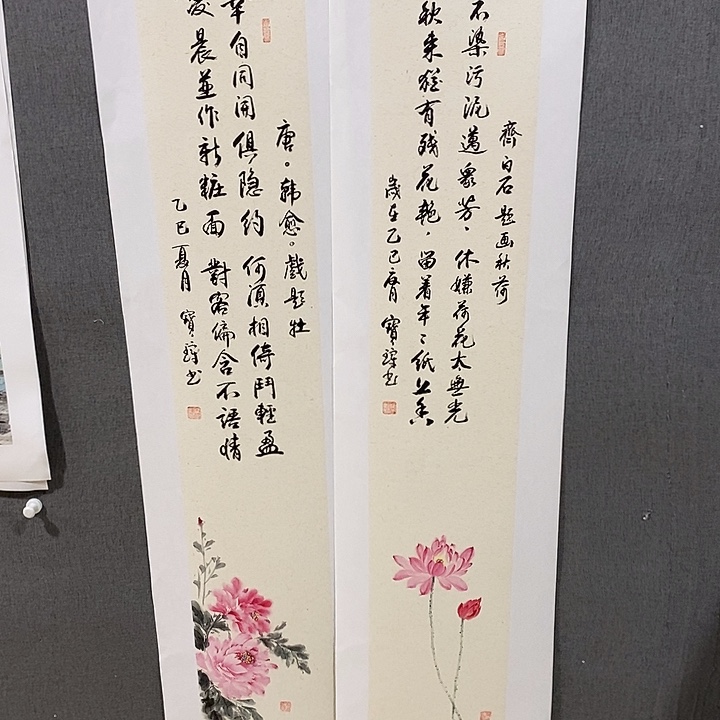 齊白石题画秋荷
不染污泥邁眾芳、休嫌荷花太無光
秋来猶有殘花艳，留着年々紙上香
歲在乙巳夏月 寶 书
唐。韩愈。戲題牡
幸自同開俱隐約 何須相倚鬥輕盈
凌晨並作新粧面 對客偏含不語情
乙巳夏月 寶 书